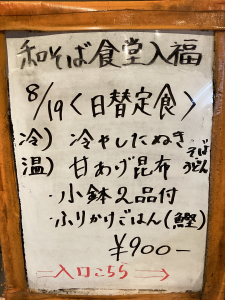 和そば食堂入福
8/19〈日替定食〉
冷）冷やしたぬき
温）甘あげ昆布
そば
うどん
・小鉢2品付
・ふりかけごはん(鰹)
¥900-
入口こちら→